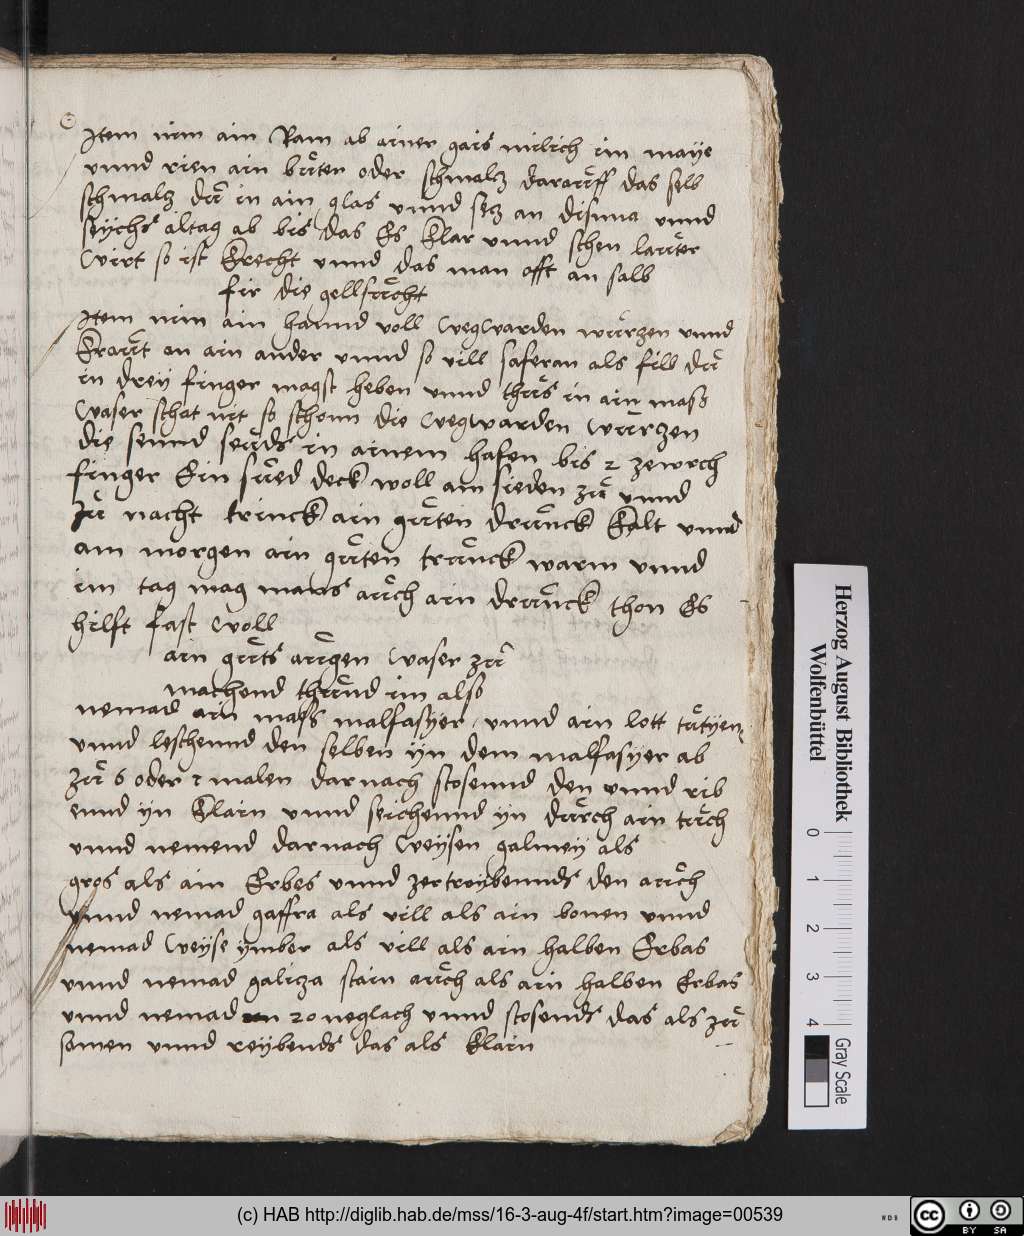 Item nim ain Ram ab ainer gais milich im maÿe
vnnd rier ain bůter oder schmalz darauff das selb
schmalz dů in ain glas vnnd sez an disunna vnnd
seÿchs altag ab bis das Es Klar vnnd schen lauter
Wirt so ist Erecht vnnd das man offt an salb
fir die gellsůcht
Item nim ain hannd voll Wegwarden wurzen vnnd
Kraut an ain ander vnnd so vill saferan als fill dů
in dreÿ finger magst heben vnnd thůs in ain mass
Waser schat nit so schonn die Wegwarden Wurzen
die sennd seůds in ainem hafen bis 2 zewrch
finger Ein sůed deck woll am sieden zů vnnd
zů nacht trinck ain gůten drůnck Kalt vnnd
am morgen ain gůten trůnck warm vnnd
im tag mag mans aůch ain drůnck thon Es
hilft fast woll
ain gůts aůgen Waser zů
machend thůnd im also
nemad ain mass malfasÿer vnnd ain lott tůtÿen
vnnd leschennd den selben ÿn dem malfasÿer ab
zů 6 oder 7 malen darnach stosennd den vnnd rib
ennd ÿn Klain vnnd seichennd ÿn durch ain tůch
vnnd nemend darnach Weÿsen galmeÿ als
gros als ain Erbes vnnd zertreÿbennds den aůch
vnnd nemad gaffra als vill als ain bonen vnnd
nemad Weÿse ÿmber als vill als ain halben Erbas
vnnd nemad galiza stain aůch als ain halben Erbas
vnnd nemad 20 neglach vnnd stosends das als zů
samen vnnd reÿbends das als Klain
Herzog August Bibliothek
Wolfenbüttel
0 1 2 3 4
Gray Scale
(c) HAB http://diglib.hab.de/mss/16-3-aug-4f/start.htm?image=00539
WDB
cc BY SA